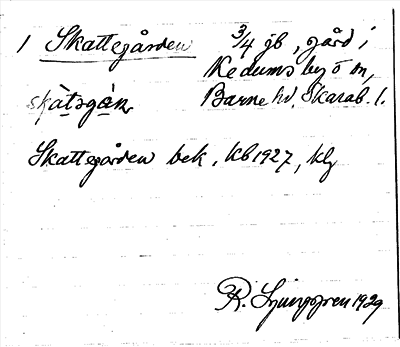 1 Skattegården 3/4 gb, gård i
Kedums by o sn,
skàtəgàn Barne hd, Skarab. l.
Skattegården bek, kb 1927, klg
R. Ljunggren 1929